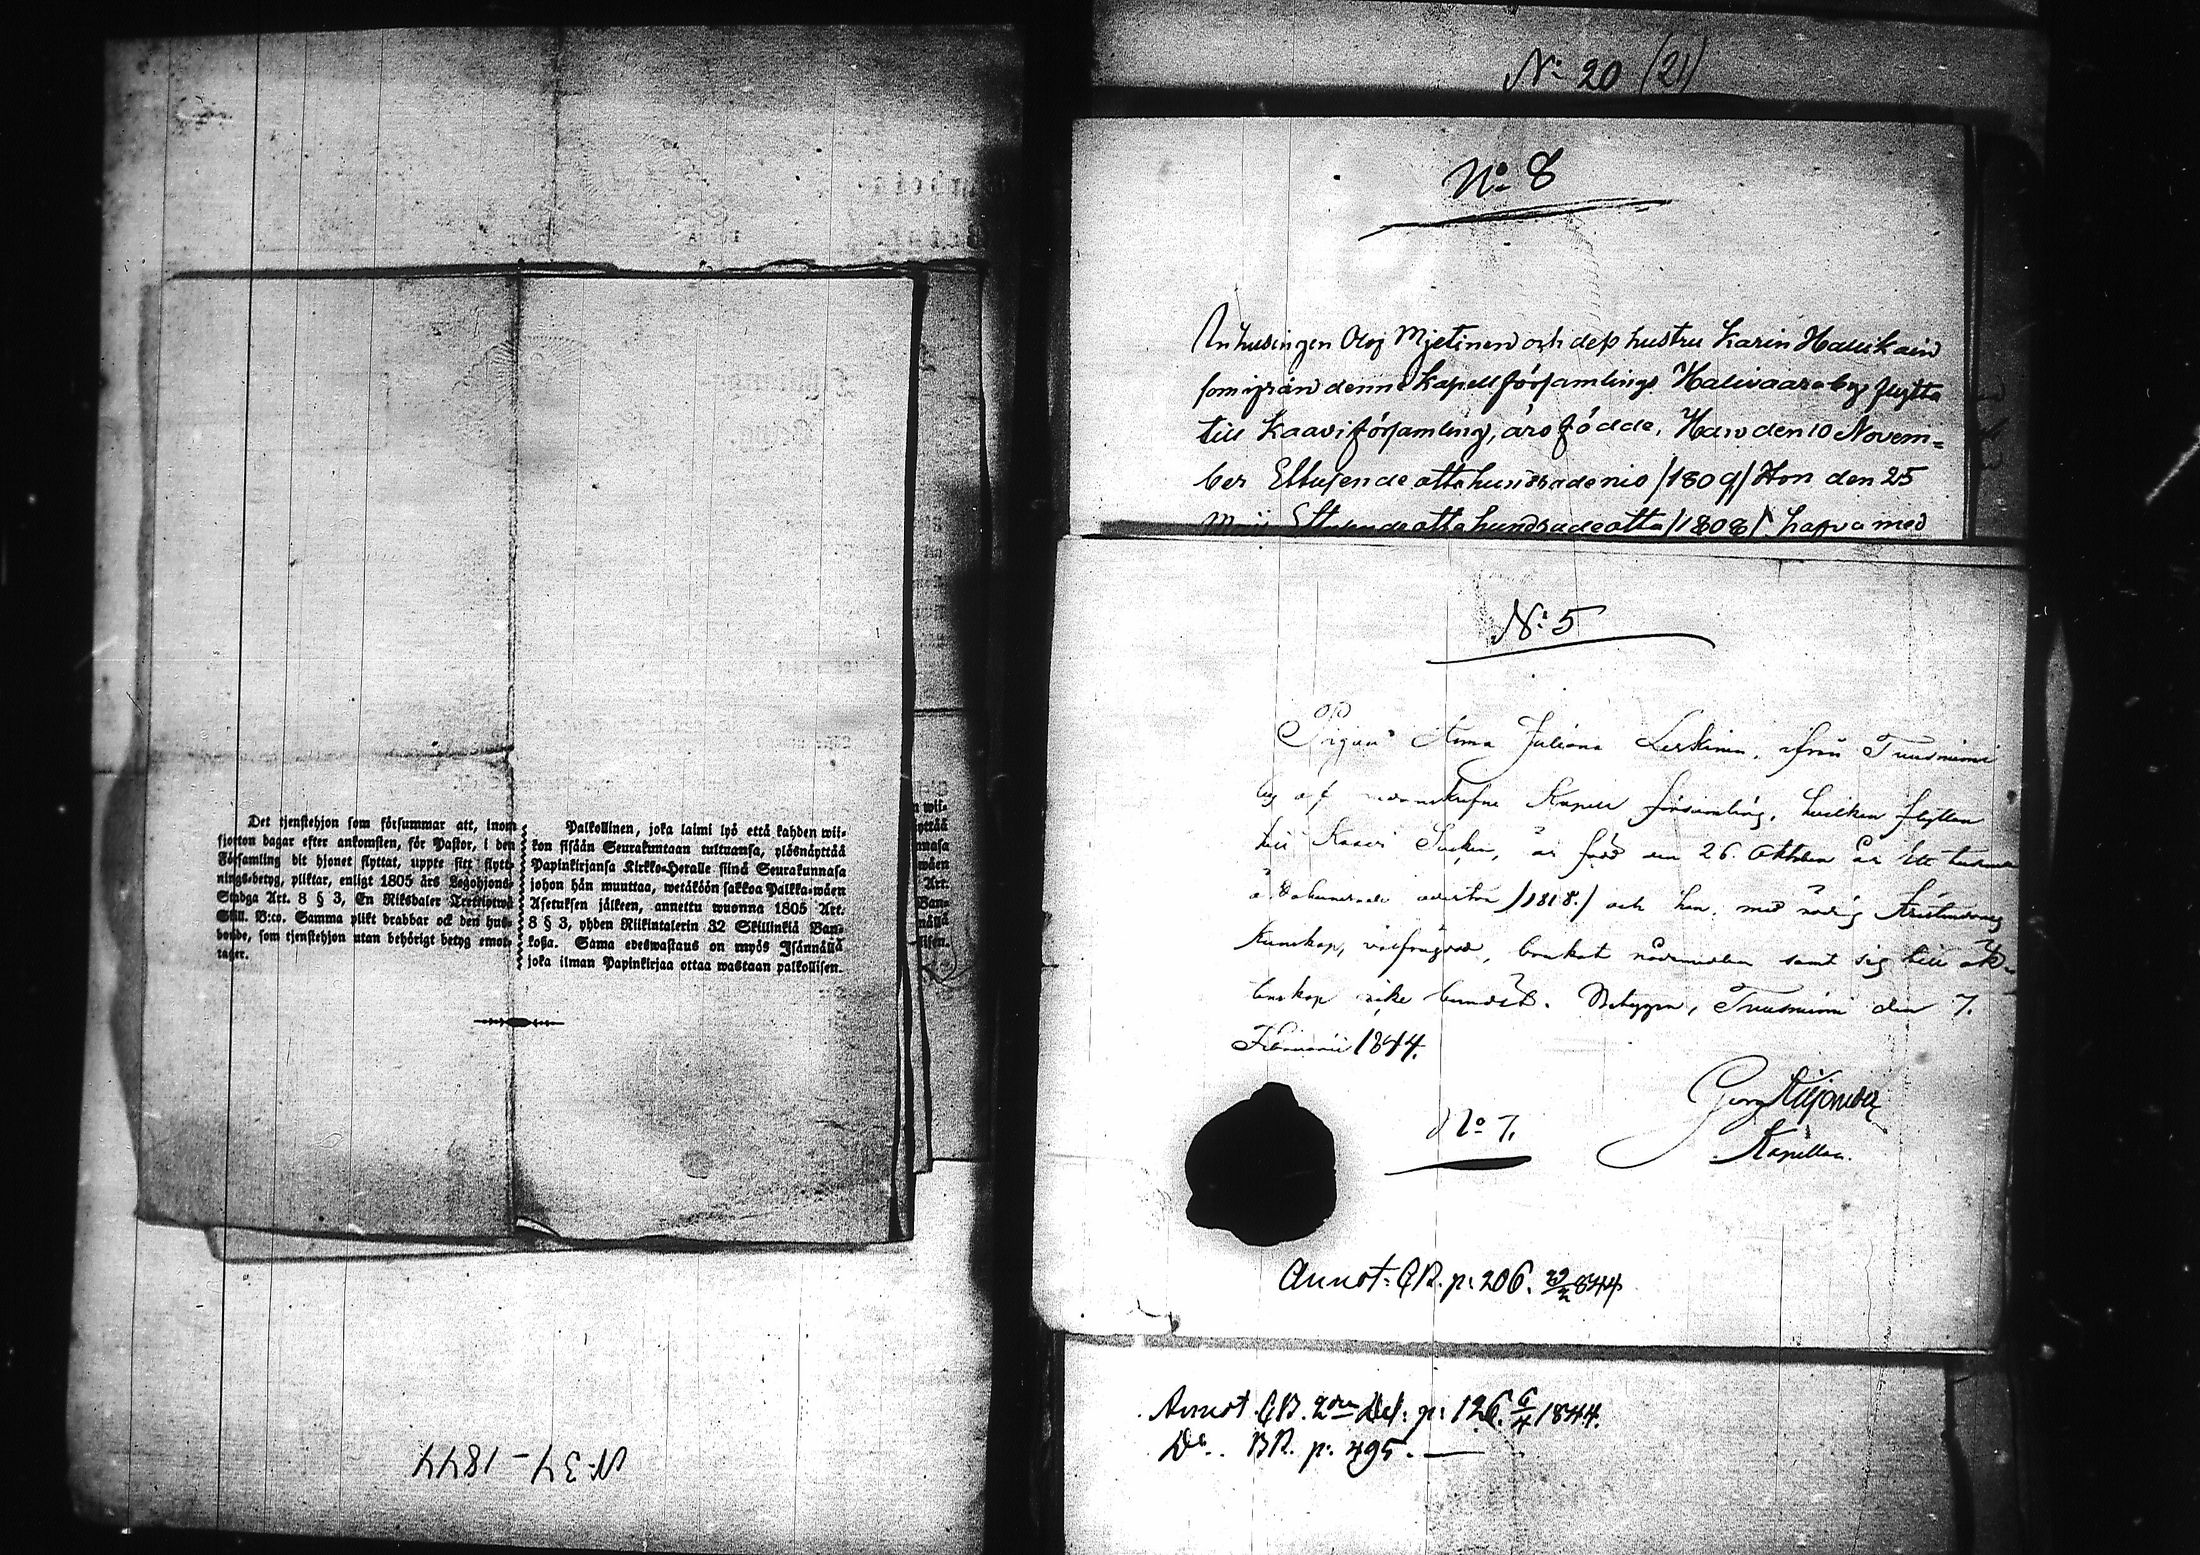 Det tjenstehjon som försummar att, inom
fjorton dagar efter ankomsten, för Pastor, i den
Församling dit hjonet flyttat, uppte sitt flytt-
nings-betyg, pliktar, enligt 1805 års Legohjons-
Stadga Art. 8 § 3, En Riksdaler Trettiotwå
Skill. B:co. Samma plikt drabbar ock den hus-
bonde, som tjenstehjon utan behörigt betyg emot-
tager.
Palkollinen, joka laimi lyö että kahden wii-
kon sisään Seurakuntaan tultuansa, ylösnäyttää
Papinkirjansa Kirkko-Heralle siinä Seurakunnasa
johon hän muuttaa, wetäköön sakkoa Palkka-wäen
Asetuksen jälkeen, annettu wuonna 1805 Art.
8 § 3, yhden Riikintalerin 32 Skillinkiä Ban-
koßa. Sama edeswastaus on myös Isännällä
joka ilman Papinkirjaa ottaa wastaan palkollisen.
N: 34 - 1844
N: 20 (21)
No 8
Inhusingen Olof Mjetinen och dess hustru Karin Haukain
som ifrån denne Kapellförsamlings Halivaara by flytta
till Kaavi församling, äro födde, Han den 10 Novem=
ber Ettusende attahundrade nio /1809/ Hon den 25
Ettusende attahundrade atta /1808/ hafva med
N: 5
Pigan Anna Juliana Leskinen, ifrån Tuusniemi
by af Kapell församling, hvilken flyttar
till Kaavi Socken, är född den 26 Oktober år Ett tusende
åttahundrade aderton /1818./ och har, med nödig Kristendoms
Kunskap, välfrägdad, bevkat nådemedlen samt sig till äk-
tenskap icke bundit. Betygar, Tuusniemi den 7.
Februarii 1844.
Georg Kiljander
Kapellan.
No 7.
Annot: CB. p: 206. 1844
Annot CB. 2dra Del: p: 126. 6/4 1844.
Do. BB. p: 495. —